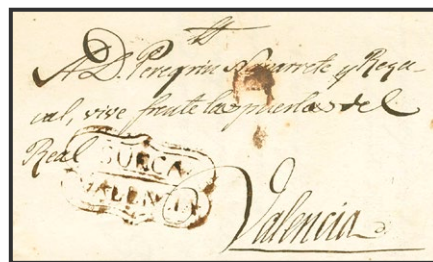 A D. Peregrin Navarrete y Reque-
val, vive frente la puerta del
Real
SUECA
VALENCIA
Valencia